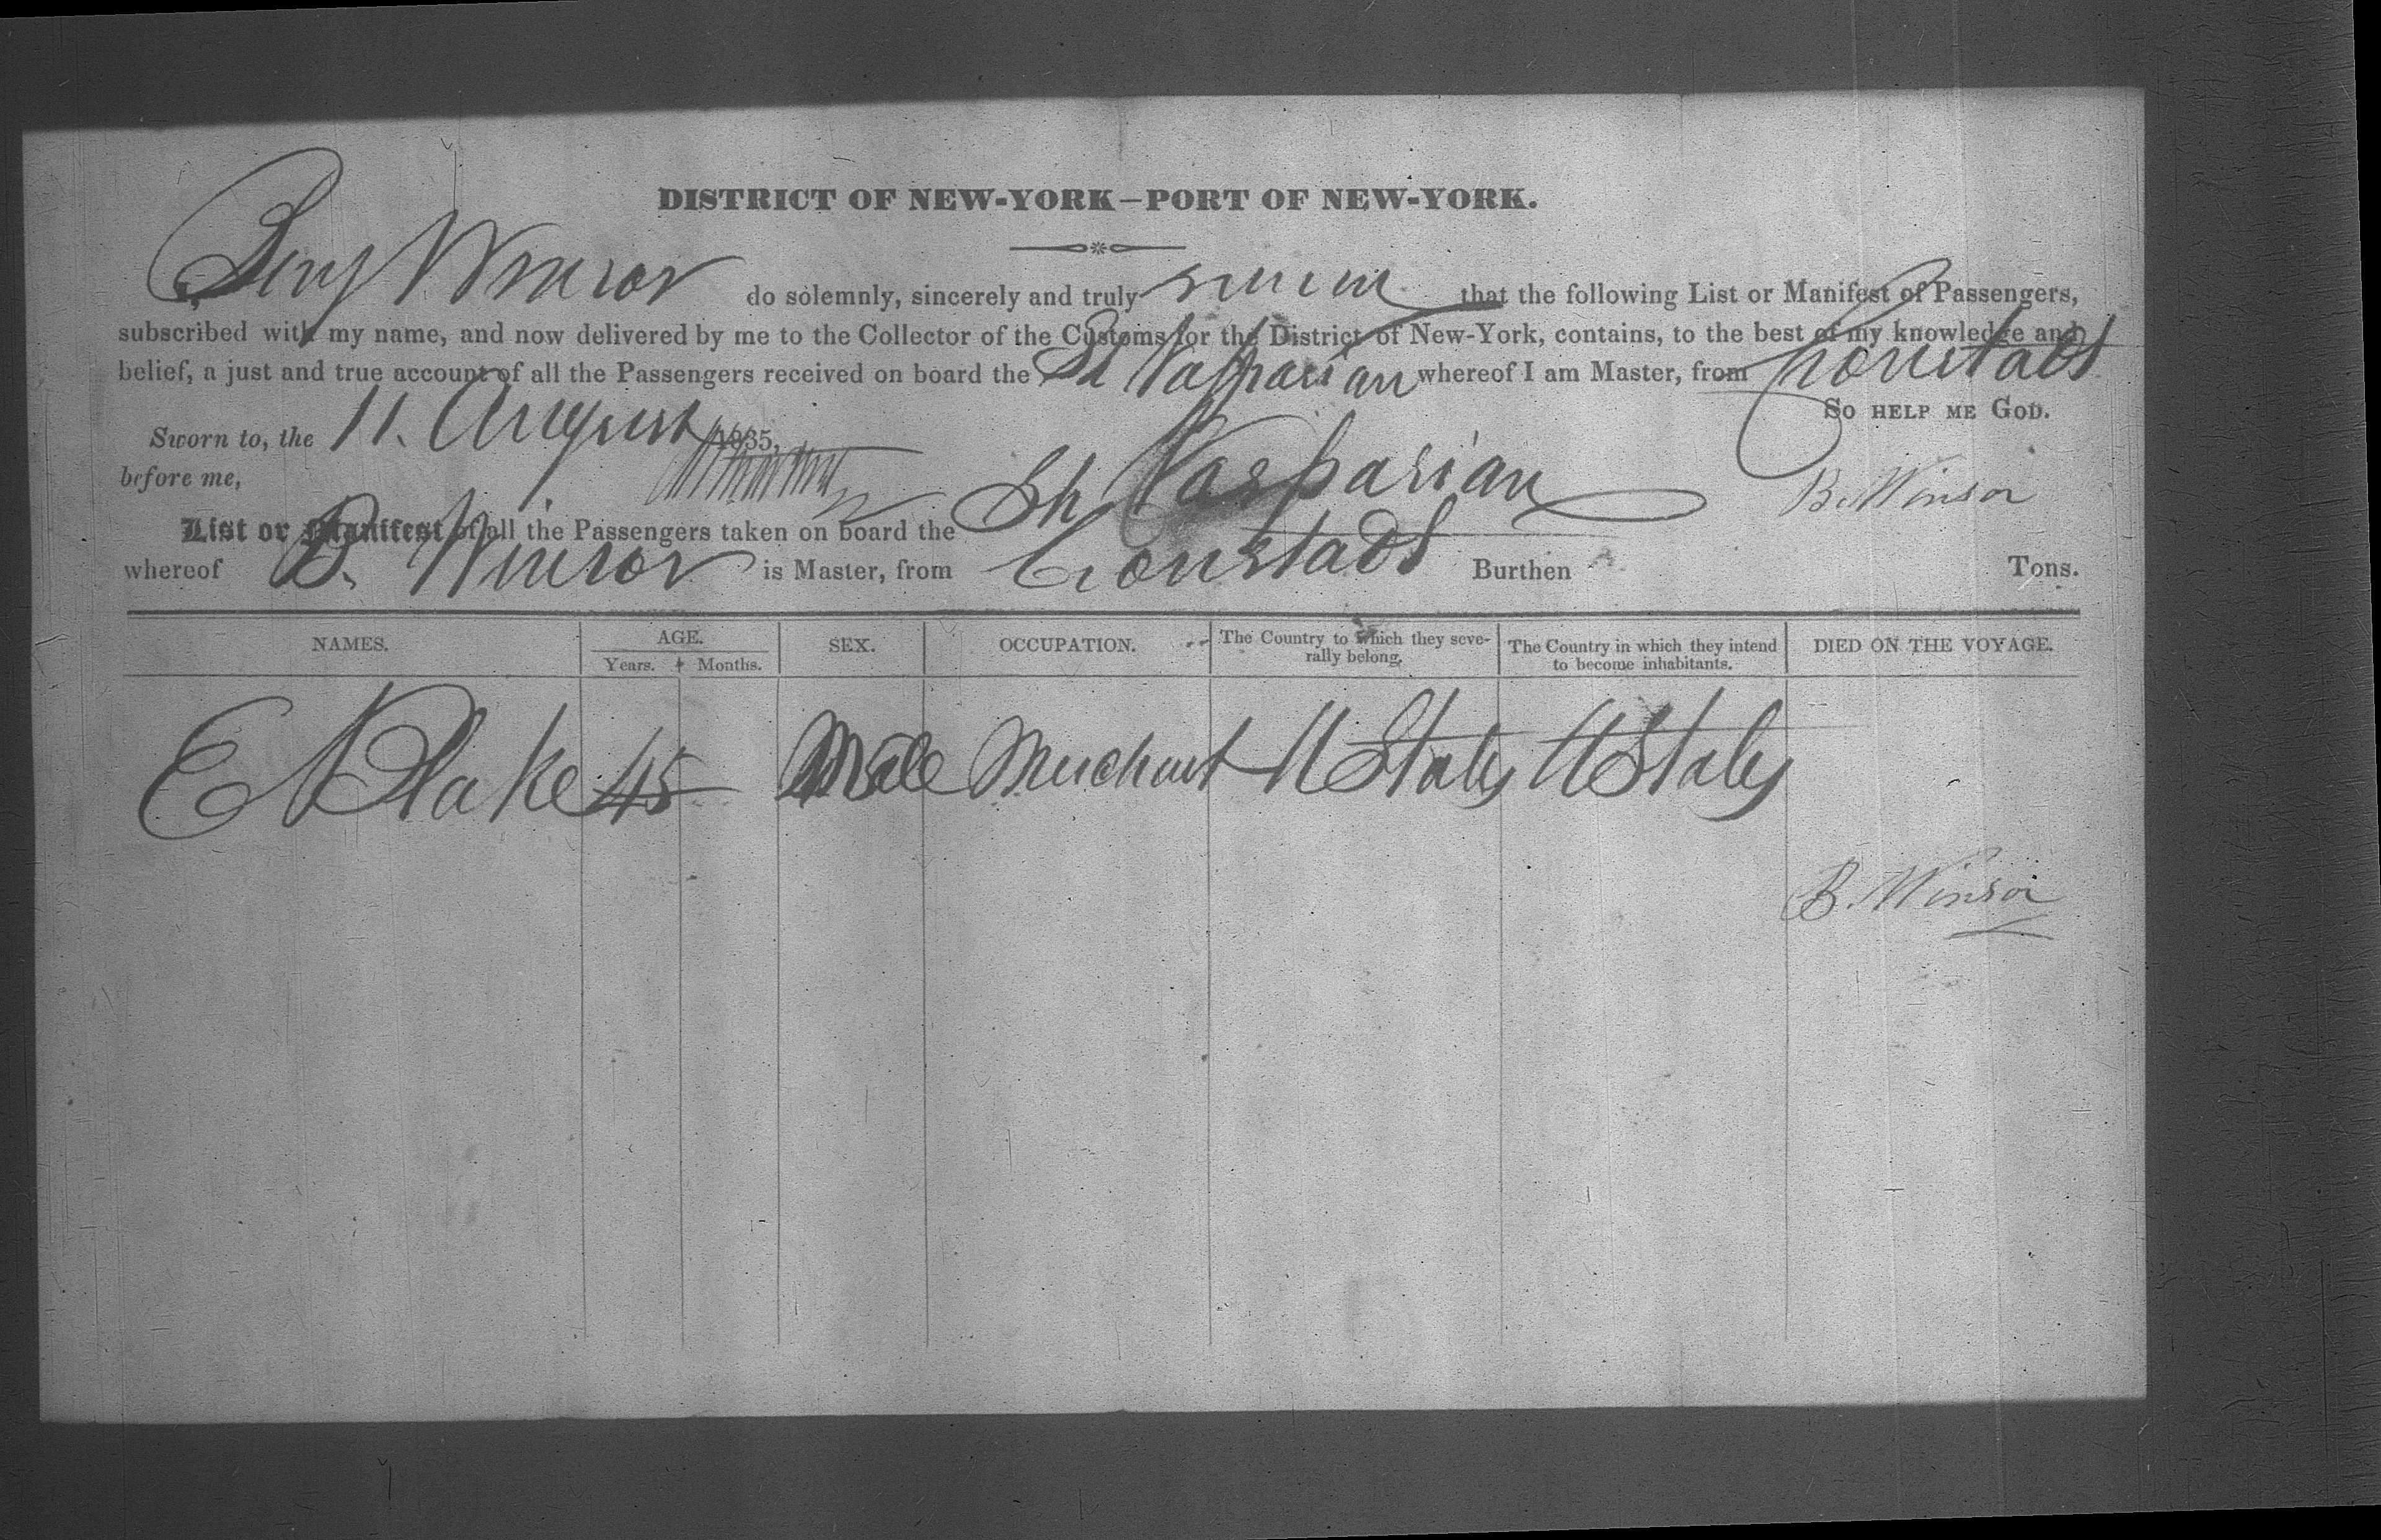 DISTRICT OF NEW-YORK—PORT OF NEW-YORK.
I, Benj Winsor do solemnly, sincerely and truly swear that the following List or Manifest of Passengers,
subscribed with my name, and now delivered by me to the Collector of the Customs for the District of New-York, contains, to the best of my knowledge and
belief, a just and true account of all the Passengers received on board the Sh Vasparian whereof I am Master, from Cronstadt
So HELP ME GOD.
Sworn to, the 11. August 1835,
before me,
B. Winsor
List or Manifest of all the Passengers taken on board the Sh Vasparian
whereof B. Winsor is Master, from Cronstadt Burthen Tons.
NAMES. AGE. Years. Months. SEX. OCCUPATION. The Country to which they severally belong. The Country in which they intend to become inhabitants. DIED ON THE VOYAGE.
E Blake 45 Male Merchant U States U States
B. Winsor